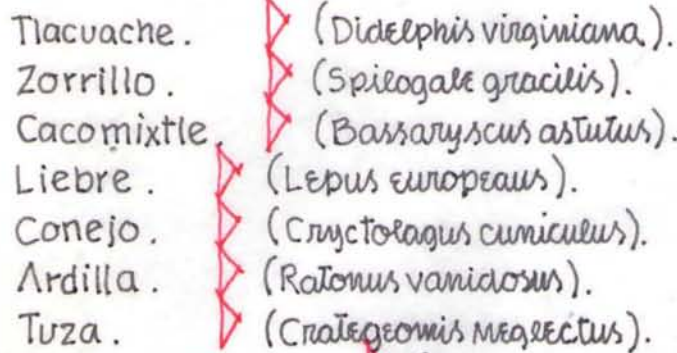 Tlacuache. (Didelphis virginiana).
Zorrillo. (Spilogale gracilis).
Cacomixtle. (Bassaryscus astutus).
Liebre. (Lepus europeaus).
Conejo. (Cryctolagus cuniculus).
Ardilla. (Ratonus vanidosus).
Tuza. (Crategeomis neglectus).